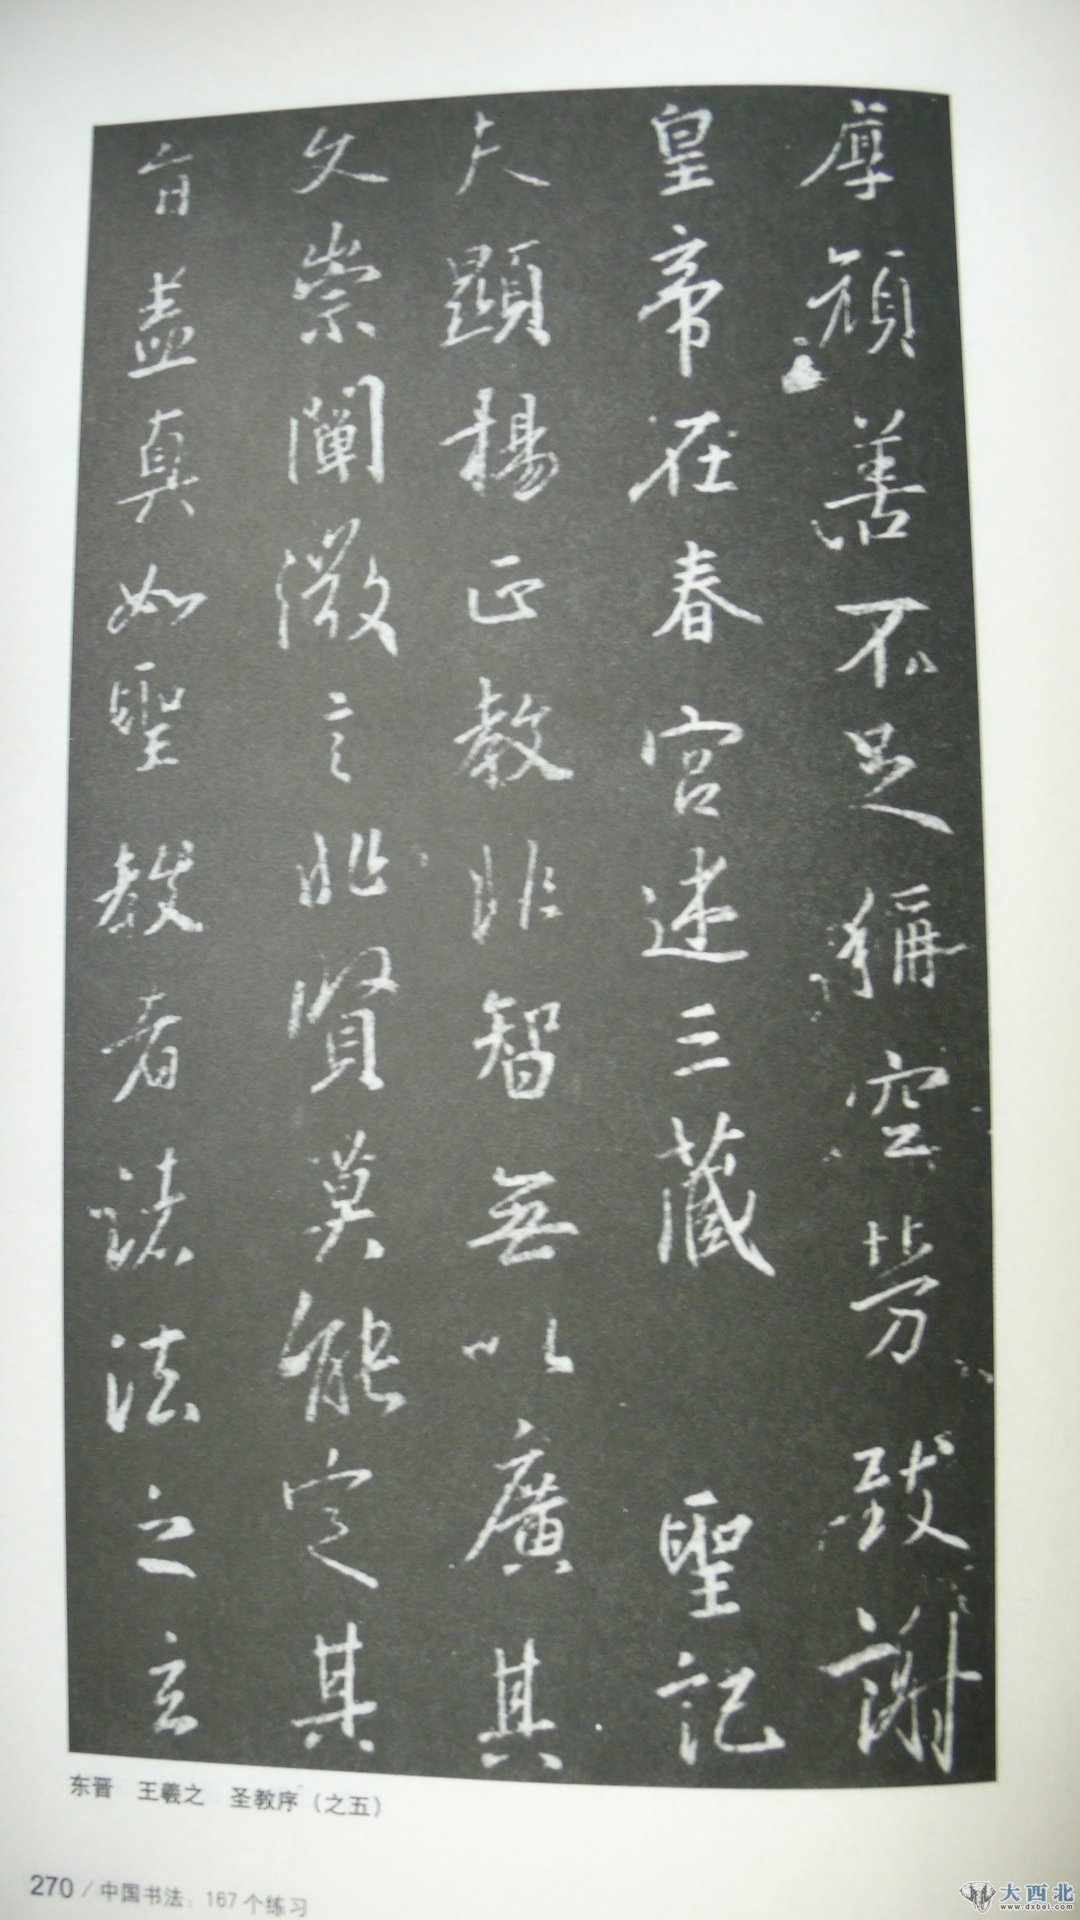 厚顧善不足稱空勞致謝
皇帝在春宮述三藏 聖記
夫顯揚正教非智無以廣其
文崇闡微言非賢莫能定其
旨盖真如聖教者諸法之玄
东晋 王羲之 圣教序(之五)
270/中国书法:167个练习
大西北
www.dxbei.com